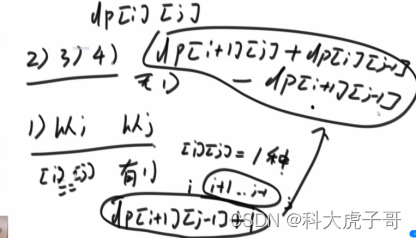 dp[i][j]
2) 3) 4) 无1) dp[i+1][j] + dp[i][j-1]
- dp[i+1][j-1]
1) 从i 从j
[i] == [j] 有1)
[i][j] = 1种
i i+1...j-1
dp[i+1][j-1]+
CSDN @科大虎子哥